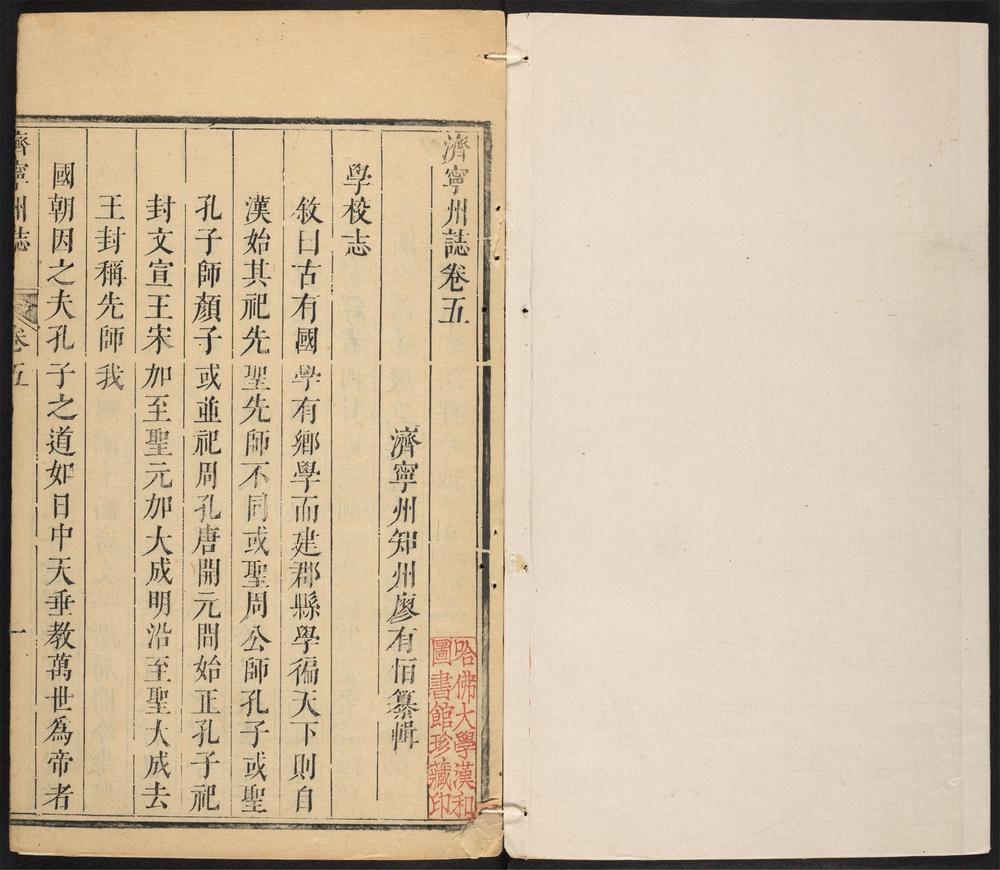 濟寧州誌卷五
濟寧州知州廖有恒纂輯
學校志
敘曰古有國學有鄉學而建郡縣學徧天下則自
漢始其祀先聖先師不同或聖周公師孔子或聖
孔子師顏子或並祀周孔唐開元間始正孔子祀
封文宣王宋加至聖元加大成明沿至聖大成去
王封稱先師我
國朝因之夫孔子之道如日中天垂教萬世爲帝者
濟寧州誌
卷五
一
哈佛大學漢和
圖書館珍藏印